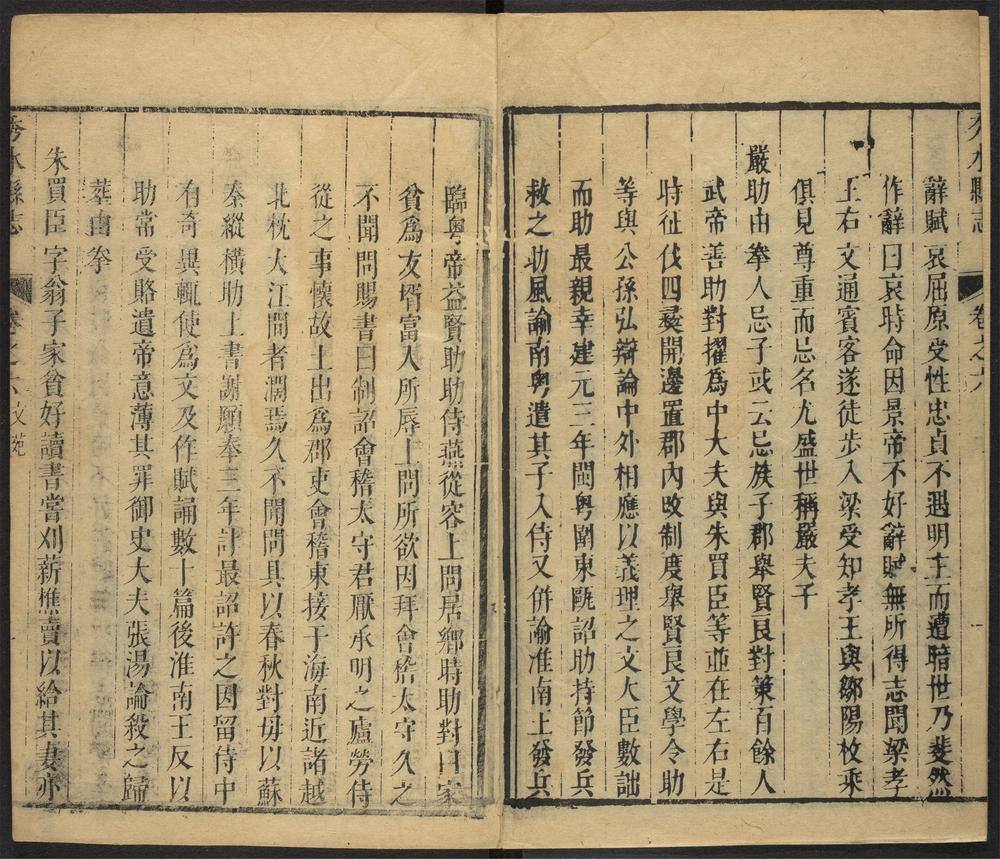 秀水縣志 卷之六
辭賦哀屈原受性忠貞不遇明王而遭暗世乃斐然
作辭曰哀時命因景帝不好辭賦無所得志聞梁孝
王右文通賓客遂徒步入梁受知孝王與鄒陽枚乘
俱見尊重而忌名尤盛世稱嚴夫子
嚴助由拳人忌子或云忌族子郡舉賢良對策百餘人
武帝善助對擢為中大夫與朱買臣等並在左右是
時征伐四夷開邊置郡內改制度舉賢良文學令助
等與公孫弘辯論中外相應以義理之文大臣數詘
而助最親幸建元三年閩粤圍東甌詔助持節發兵
救之助風諭南粤遣其子入侍又併諭淮南上發兵
臨粤帝益賢助助侍燕從容上問居鄉時助對曰家
貧為友壻富人所辱上問所欲因拜會稽太守久之
不聞問賜書曰制詔會稽太守君厭承明之廬勞侍
從之事懷故土出為郡吏會稽東接于海南近諸越
北枕大江間者濶焉久不聞問具以春秋對毋以蘇
秦縱横助上書謝願奉三年計最詔許之因留侍中
有奇異輒使為文及作賦誦數十篇後淮南王反以
助常受賂遺帝意薄其罪御史大夫張湯論殺之歸
塟由拳
朱買臣字翁子家貧好讀書嘗刈薪樵賣以給其妻亦
秀水縣志 卷之六 文苑